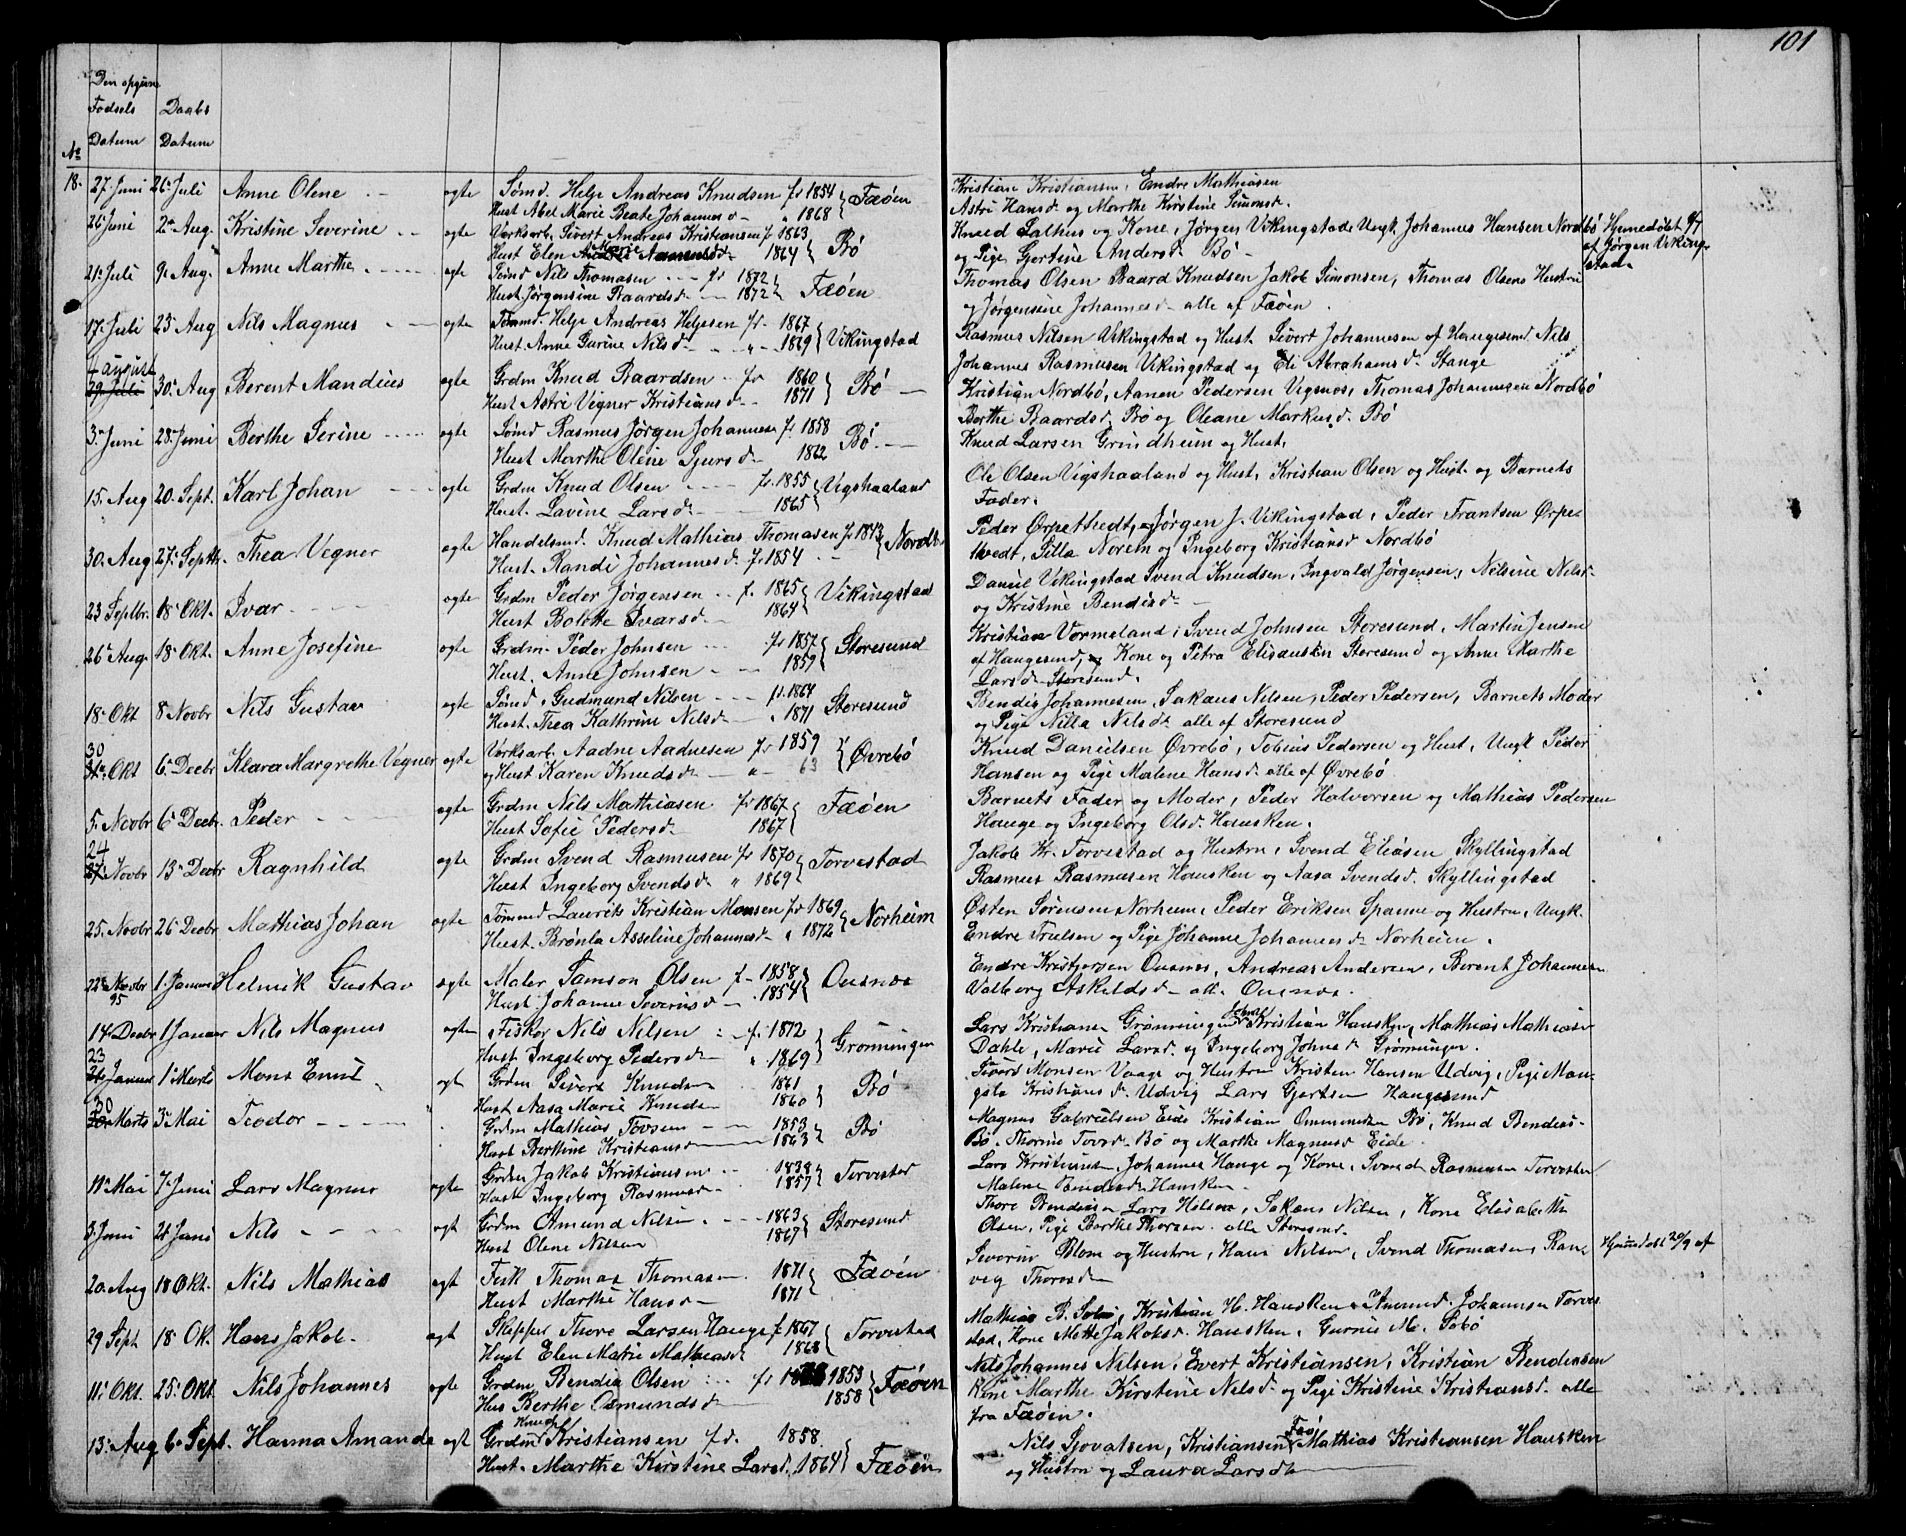 101
Den opgivne
Fødsels Daabs
Datum Datum
No
18. 27. Juni 26. Juli Anne Olene ægte Sømd. Helje Andreas Knudsen fr 1854 Fæøen Kristian Kristiansen, Endre Mathiasen
Hust Abel Marie Beate Johannesd " 1868 Astri Hansd og Marthe Kirstine Simonsd.
26 Juni 2den Aug. Kristine Severine ægte Værksarb. Sivert Andreas Kristiansen fr 1863 Bø Knud Salhus og Kone, Jørgen Vikingstad Ungk. Johannes Hansen Nordbø Hjemmedøbt 9/7
Hust Elen Marie 1864 og Pige Gjertine Andersd Bø af Jørgen Viking-
stad.
21. Juli 9. Aug. Anne Marthe ægte Sømd Nils Thomasen fr 1872 Fæøen Thomas Olsen Baard Knudsen Jakob Simonsen, Thomas Olsens Hustru
Hust. Jørgensine Baardsd 1872 og Jørgensine Johannesd alle af Fæøen
17. Juli 23. Aug Nils Magnus ægte Tømmd. Helje Andreas Helgesen fr. 1867 Vikingstad Rasmus Nilsen Vikingstad og Hust. Sivert Johannesen af Haugesund Nils
Hust. Anne Gurine Nilsd " 1869 Johannes Rasmusen Vikingstad og Eli Abrahamsd. Stange
4 august
29 Juli 30. Aug Berent Mandius ægte Grdm Knud Baardsen fr 1860 Bø Kristian Nordbø, Aanen Pedersen Vigsnes, Thomas Johannesen Nordbø
Hust Astri Vegner Kristiansd 1871 Berthe Baardsd Bø og Oleane Markusd. Bø
3. Juni 28. Juni Berthe Serine ægte Sømd Rasmus Jørgen Johannesen fr 1858 Bø Knud Larsen Grindheim og Hust.
Hust Marthe Olene Sjursd 1862
15. Aug 20. Sept. Karl Johan ægte Grdm Knud Olsen fr. 1855 Vigshaaland Ole Olsen Vigshaaland og Hust, Kristian Olsen og Hust. og Barnets
Hust. Lavine Larsd 1865 Fader.
30. Aug 27. Septb. Thea Vegner ægte Handelsmd. Knud Mathias Thomasen fr 1843 Nordbø Peder Ørpethvedt, Jørgen J. Vikingstad, Peder Frantsen Ørpe-
Hust. Randi Johannesd f. 1854 thvedt, Silla Norem og Ingeborg Kristiansd Nordbø
23 Septbr. 18. Okt. Ivar ægte Grdm Peder Jørgensen f. 1865 Vikingstad Daniel Vikingstad Svend Knudsen, Ingvald Jørgensen, Nilsine Nilsd
Hust Bolette Ivarsd 1864 og Kristine Bendiksd
26. Aug. 18. Okt. Anne Josefine ægte Grdm. Peder Johnsen fr 1857 Storesund Kristian Vormeland, Svend Johnsen Storesund, Martin Jensen
Hust. Anne Johnsen 1859 af Haugesund, Kone og Petra Eliassen Storesund og Anne Marthe
Larsd Storesund.
18. Okt 8 Novbr Nils Gustav ægte Sømd. Gudmund Nilsen fr. 1864 Storesund Bendix Johannesen, Sakans Nilsen, Peder Pedersen, Barnets Moder
Hust. Thea Kathrine Nilsd " 1871 og Pige Nilla Nilsd alle af Storesund
30
Okt 6. Decbr Klara Margrethe Vegner ægte Værksarb. Aadne Aadnesen fr 1859 Øvrebø Knud Danielsen Øvrebø, Tobias Pedersen og Hust, Ungk Peder
og Hust Karen Knudsd " 63 Hansen og Pige Malene Hansd alle af Øvrebø
5. Novbr 6. Decbr. Peder ægte Grdm Nils Mathiasen fr 1867 Fæøen Barnets Fader og Moder, Peder Halvorsen og Mathias Pedersen
Hust Sofie Pedersd 1867 Hauge og Ingeborg Olsd. Hausken.
24
27. Novbr 13. Decbr Ragnhild ægte Grdm Svend Rasmusen fr 1870 Torvestad Jakob Kr. Torvestad og Hustru, Svend Eliasen Skyllingstad
Hust Ingeborg Svendsd " 1869 Rasmus Rasmusen Hausken og Aasa Svendsd. Skyllingstad
25. Novbr 26 Decbr Mathias Johan ægte Tømmd Laurits Kristian Monsen fr 1869 Norheim Østen Sørensen Norheim, Peder Eriksen Spanne og Hustru, Ungk.
Hust. Brønla Asseline Johannesd " 1872 Endre Truelsen og Pige Johanne Johannesd Norheim.
22. Novbr 1. Januar Helmik Gustav ægte Maler Samson Olsen f 1858 Ousnes Endre Kristjersen Ousnes, Andreas Andersen, Berent Johannesen
95 Hust Johanne Severinsd 1854 Valborg Askeldsd alle Ousnes.
14. Decbr 1 Januar Nils Magnus ægte Fisker Nils Nilsen f. 1872 Grønningen Lars Kristiansen Grønningen Johns Kristian Hausken, Mathias Mathiasen
Hust Ingeborg Pedersd " 1869 Dahle, Marie Larsd. og Ingeborg Johnsd Grønningen.
23
Januar 1. Marts Mons Emil ægt Grdm Sivert Knudsen 1861 Bø Sivert Monsen Vaage og Hustru Kristen Hansen Udvig, Pige Man-
Hust Aasa Marie Knudsen 1860 gela Kristiansd. Udvig Lars Gjertsen Haugesund
30
Marts 3. Mai Teodor " Grdm Mathias Tovsen 1853 Bø Magnus Gabrielsen Eide Kristian Ommundsen Bø, Knud Bendiks-
Hust Berthine Kristiansd 1863 Bø. Thorine Tovsd. Bø og Marthe Magnusd Eide.
11. Mai 7. Juni Lars Magnus ægte Grdm Jakob Kristiansen 1838 Torvestad Lars Kristiansen, Johannes Hauge og Kone, Svend Rasmusen Torvestad
Hust Ingeborg Rasmusd 1857 Malene Hausken
3. Juni 21 Juni Nils ægt Grdm Amund Nilsen 1863 Storesund Thore Bendiksen Lars Nilsen, Sakans Nilsen, Kone Elisabeth
Hust Olene Nilsen 1867 Olsen, Pige Berthe Thorsen alle Storesund.
20. Aug 18 Okt. Nils Mathias ægt Fisk Thomas Thomasen 1871 Fæøen Severin Blom og Hustru, Hans Nilsen, Svend Thomasen, Ran- Hjemmedøbt 20/9 af
Hust Marthe Hansd 1871 veg Thoresd
29 Sept 18. Ok. Hans Jakob ægt Skipper Thore Larsen Hauge f 1867 Torvestad Mathias B. Sebø, Kristian H. Hausken, Amund Johannsen Torve-
Hust Elen Marie Mathiasd 1868 stad, Kone Mette Jakobsd. Hausken, Gurine M. Sebø
11. Okt. 25. Okt. Nils Johannes ægte Grdm Bendix Olsen fr 1853 Fæøen Nils Johannes Nilsen, Evert Kristiansen, Kristian Bendiksen
Hus Berthe Osmundsd 1858 Kone Marthe Kirstine Nilsd og Pige Kristine Kristiansd. alle
fra Fæøen.
13. Aug 6. Sept. Hanna Amanda ægt Grdm Knud Kristiansen fd. 1858 Fæøen Nils Sjovatsen, Kristiansen Fæø Mathias Kristiansen Hausken
Hust. Marthe Kirstine Larsd. 1864 og Hustru og Laura Larsd